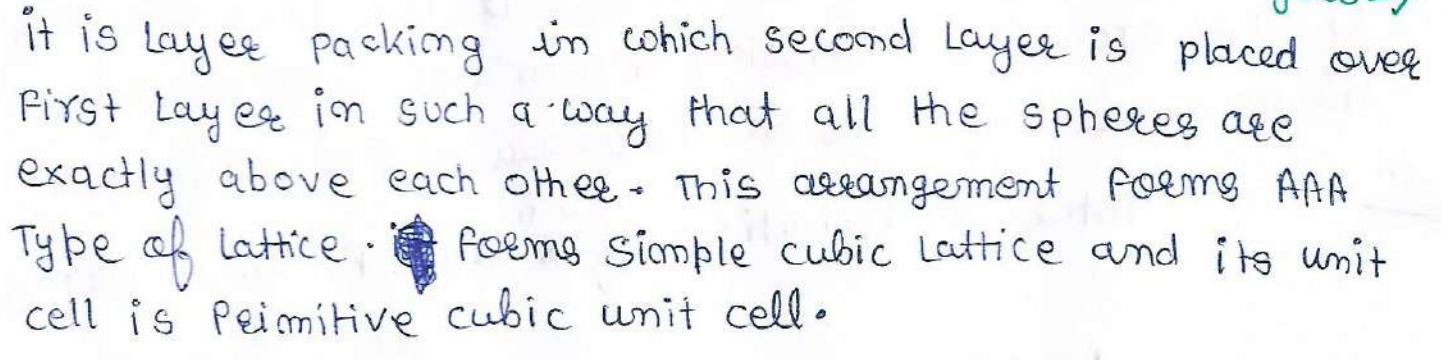 it is Layer packing in which second Layer is placed over
First Layer in such a way that all the spheres are
exactly above each other. This arrangement forms AAA
Type of Lattice. it forms Simple cubic Lattice and its unit
cell is Primitive cubic unit cell.